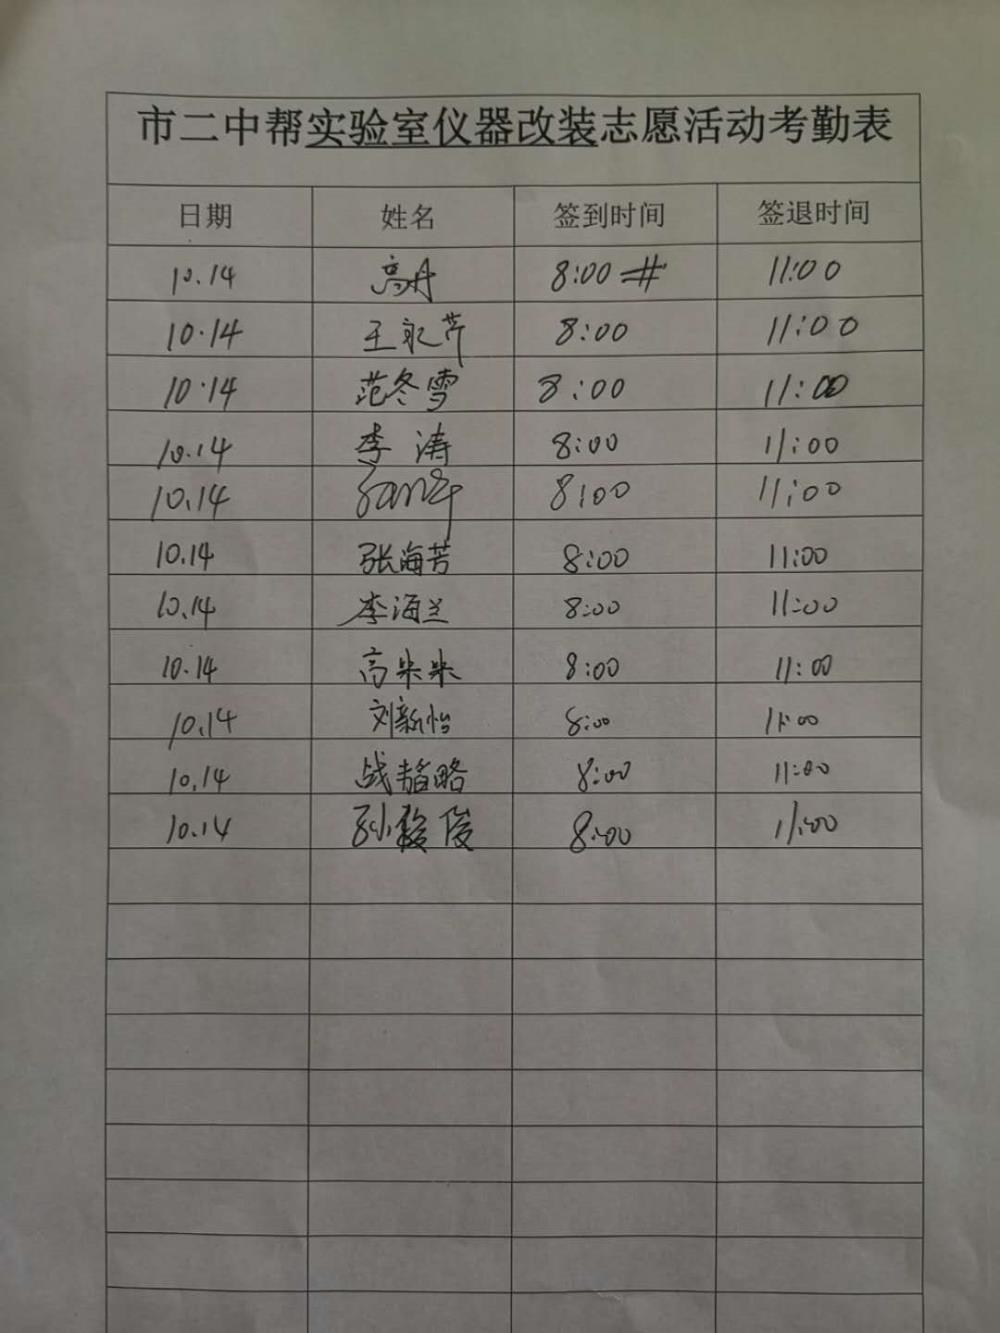 市二中帮实验室仪器改装志愿活动考勤表
日期 姓名 签到时间 签退时间
10.14 高丹 8:00 11:00
10.14 王永芹 8:00 11:00
10.14 范冬雪 8:00 11:00
10.14 李涛 8:00 11:00
10.14 8:00 11:00
10.14 张海芳 8:00 11:00
10.14 李海兰 8:00 11:00
10.14 高米米 8:00 11:00
10.14 刘新怡 8:00 11:00
10.14 战韬略 8:00 11:00
10.14 孙 俊 8:00 11:00